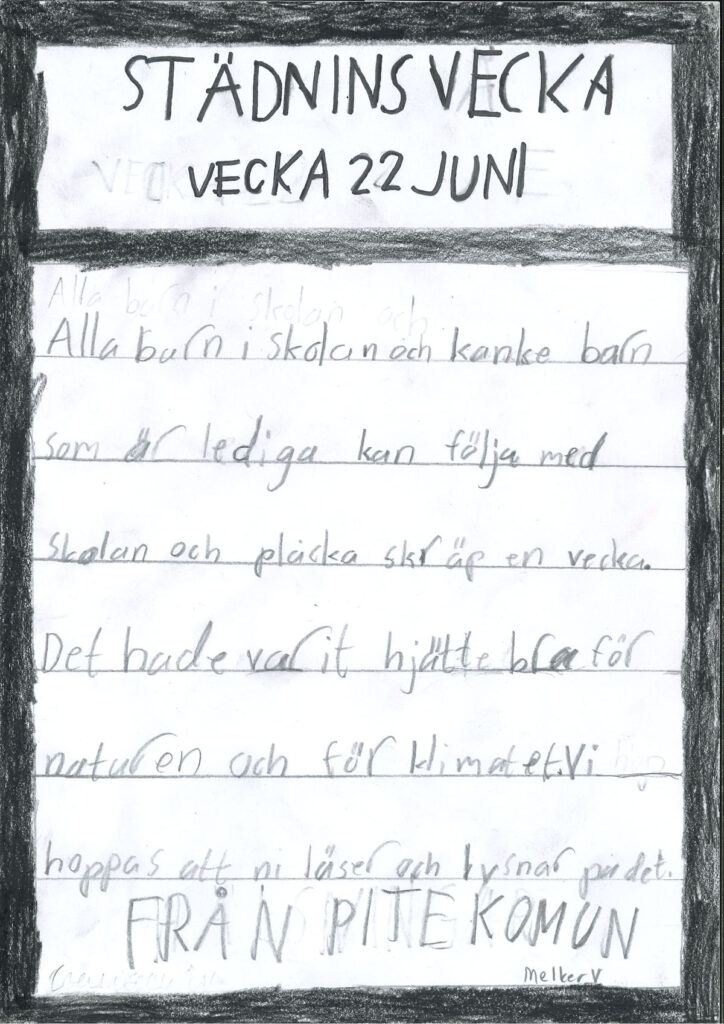 STÄDNINSVECKA
VECKA 22 JUNI
Alla barn i skolan och kanke barn
som är lediga kan följa med
skolan och plåcka skräp en vecka.
Det hade varit hjätte bra för
naturen och för klimatet. Vi
hoppas att ni läser och lysnar på det.
FRÅN PITEKOMUN
Melker V